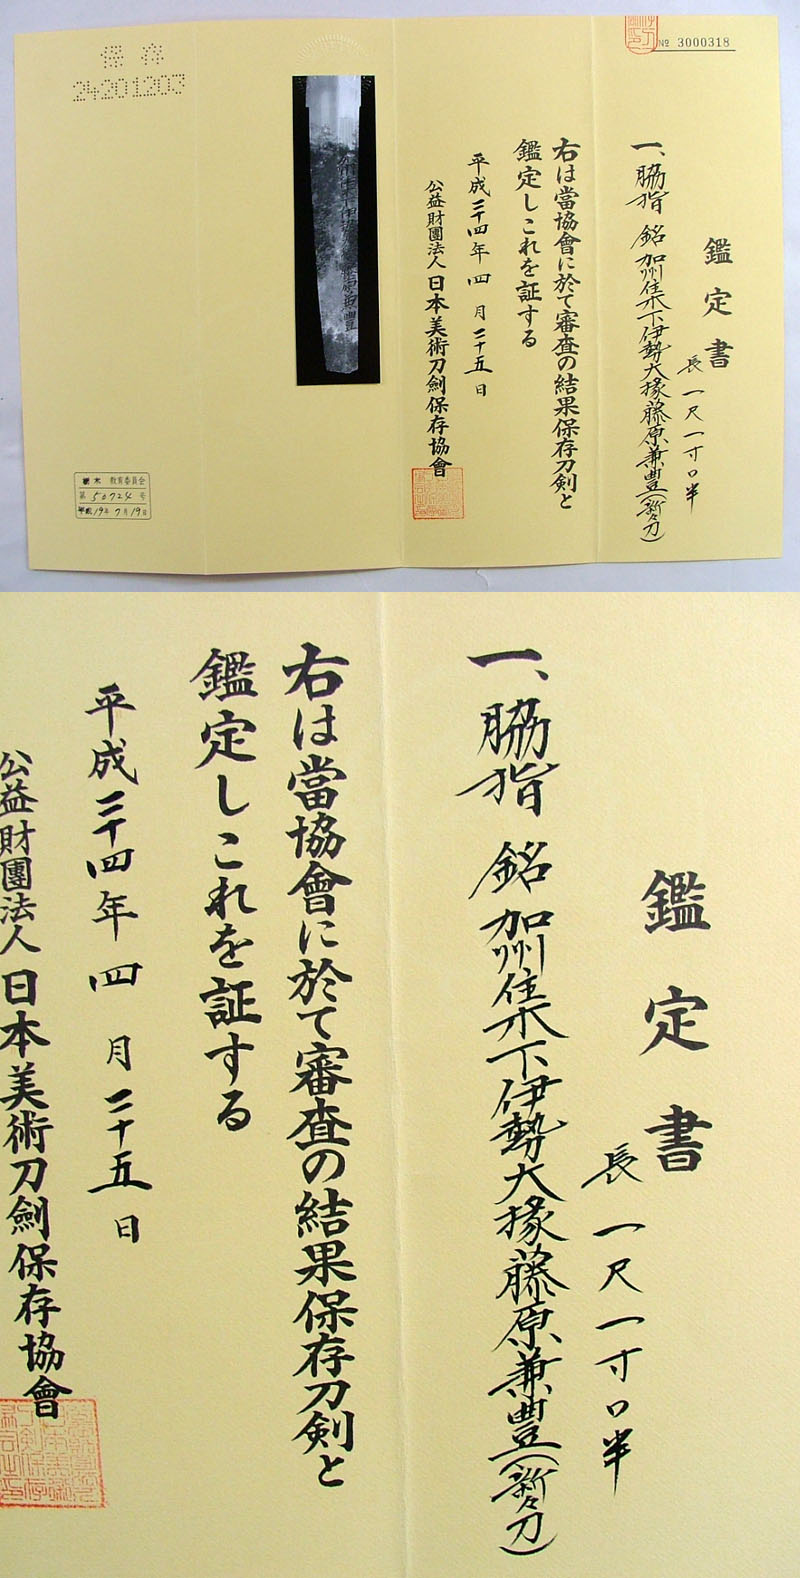 № 3000318
鑑定書
長 一尺一寸口半
一、脇指 銘 加州住木下伊勢大掾藤原兼豊(新々刀)
右は當協會に於て審査の結果保存刀剣と
鑑定しこれを証する
平成二十四年 四 月 二十五 日
公益財團法人 日本美術刀劍保存協會
保存
24201203
栃木 教育委員会
第 50724 号
平成19年7月19日
鑑定書
長 一尺一寸口半
一、脇指 銘 加州住木下伊勢大掾藤原兼豊(新々刀)
右は當協會に於て審査の結果保存刀剣と
鑑定しこれを証する
平成二十四年 四 月 二十五 日
公益財團法人 日本美術刀劍保存協會